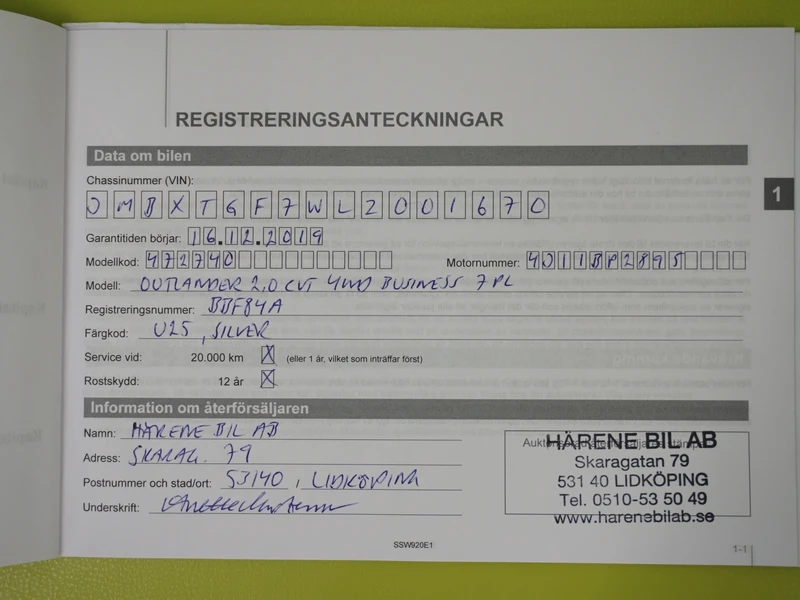 REGISTRERINGSANTECKNINGAR
Data om bilen
1
Chassinummer (VIN):
JMBXTGF7WLZ001670
Garantitiden börjar: 16.12.2019
Modellkod: 472740 Motornummer: 4J11BP2895
Modell: OUTLANDER 2,0 CVT 4WD BUSINESS 7PL
Registreringsnummer: BBF84A
Färgkod: U25, SILVER
Service vid: 20.000 km X (eller 1 år, vilket som inträffar först)
Rostskydd: 12 år X
Information om återförsäljaren
Namn: HÄRENE BIL AB
Adress: SKARAG. 79
Postnummer och stad/ort: 53140, LIDKÖPING
Underskrift:
HÄRENE BIL AB
Skaragatan 79
531 40 LIDKÖPING
Tel. 0510-53 50 49
www.harenebilab.se
SSW920E1
1-1